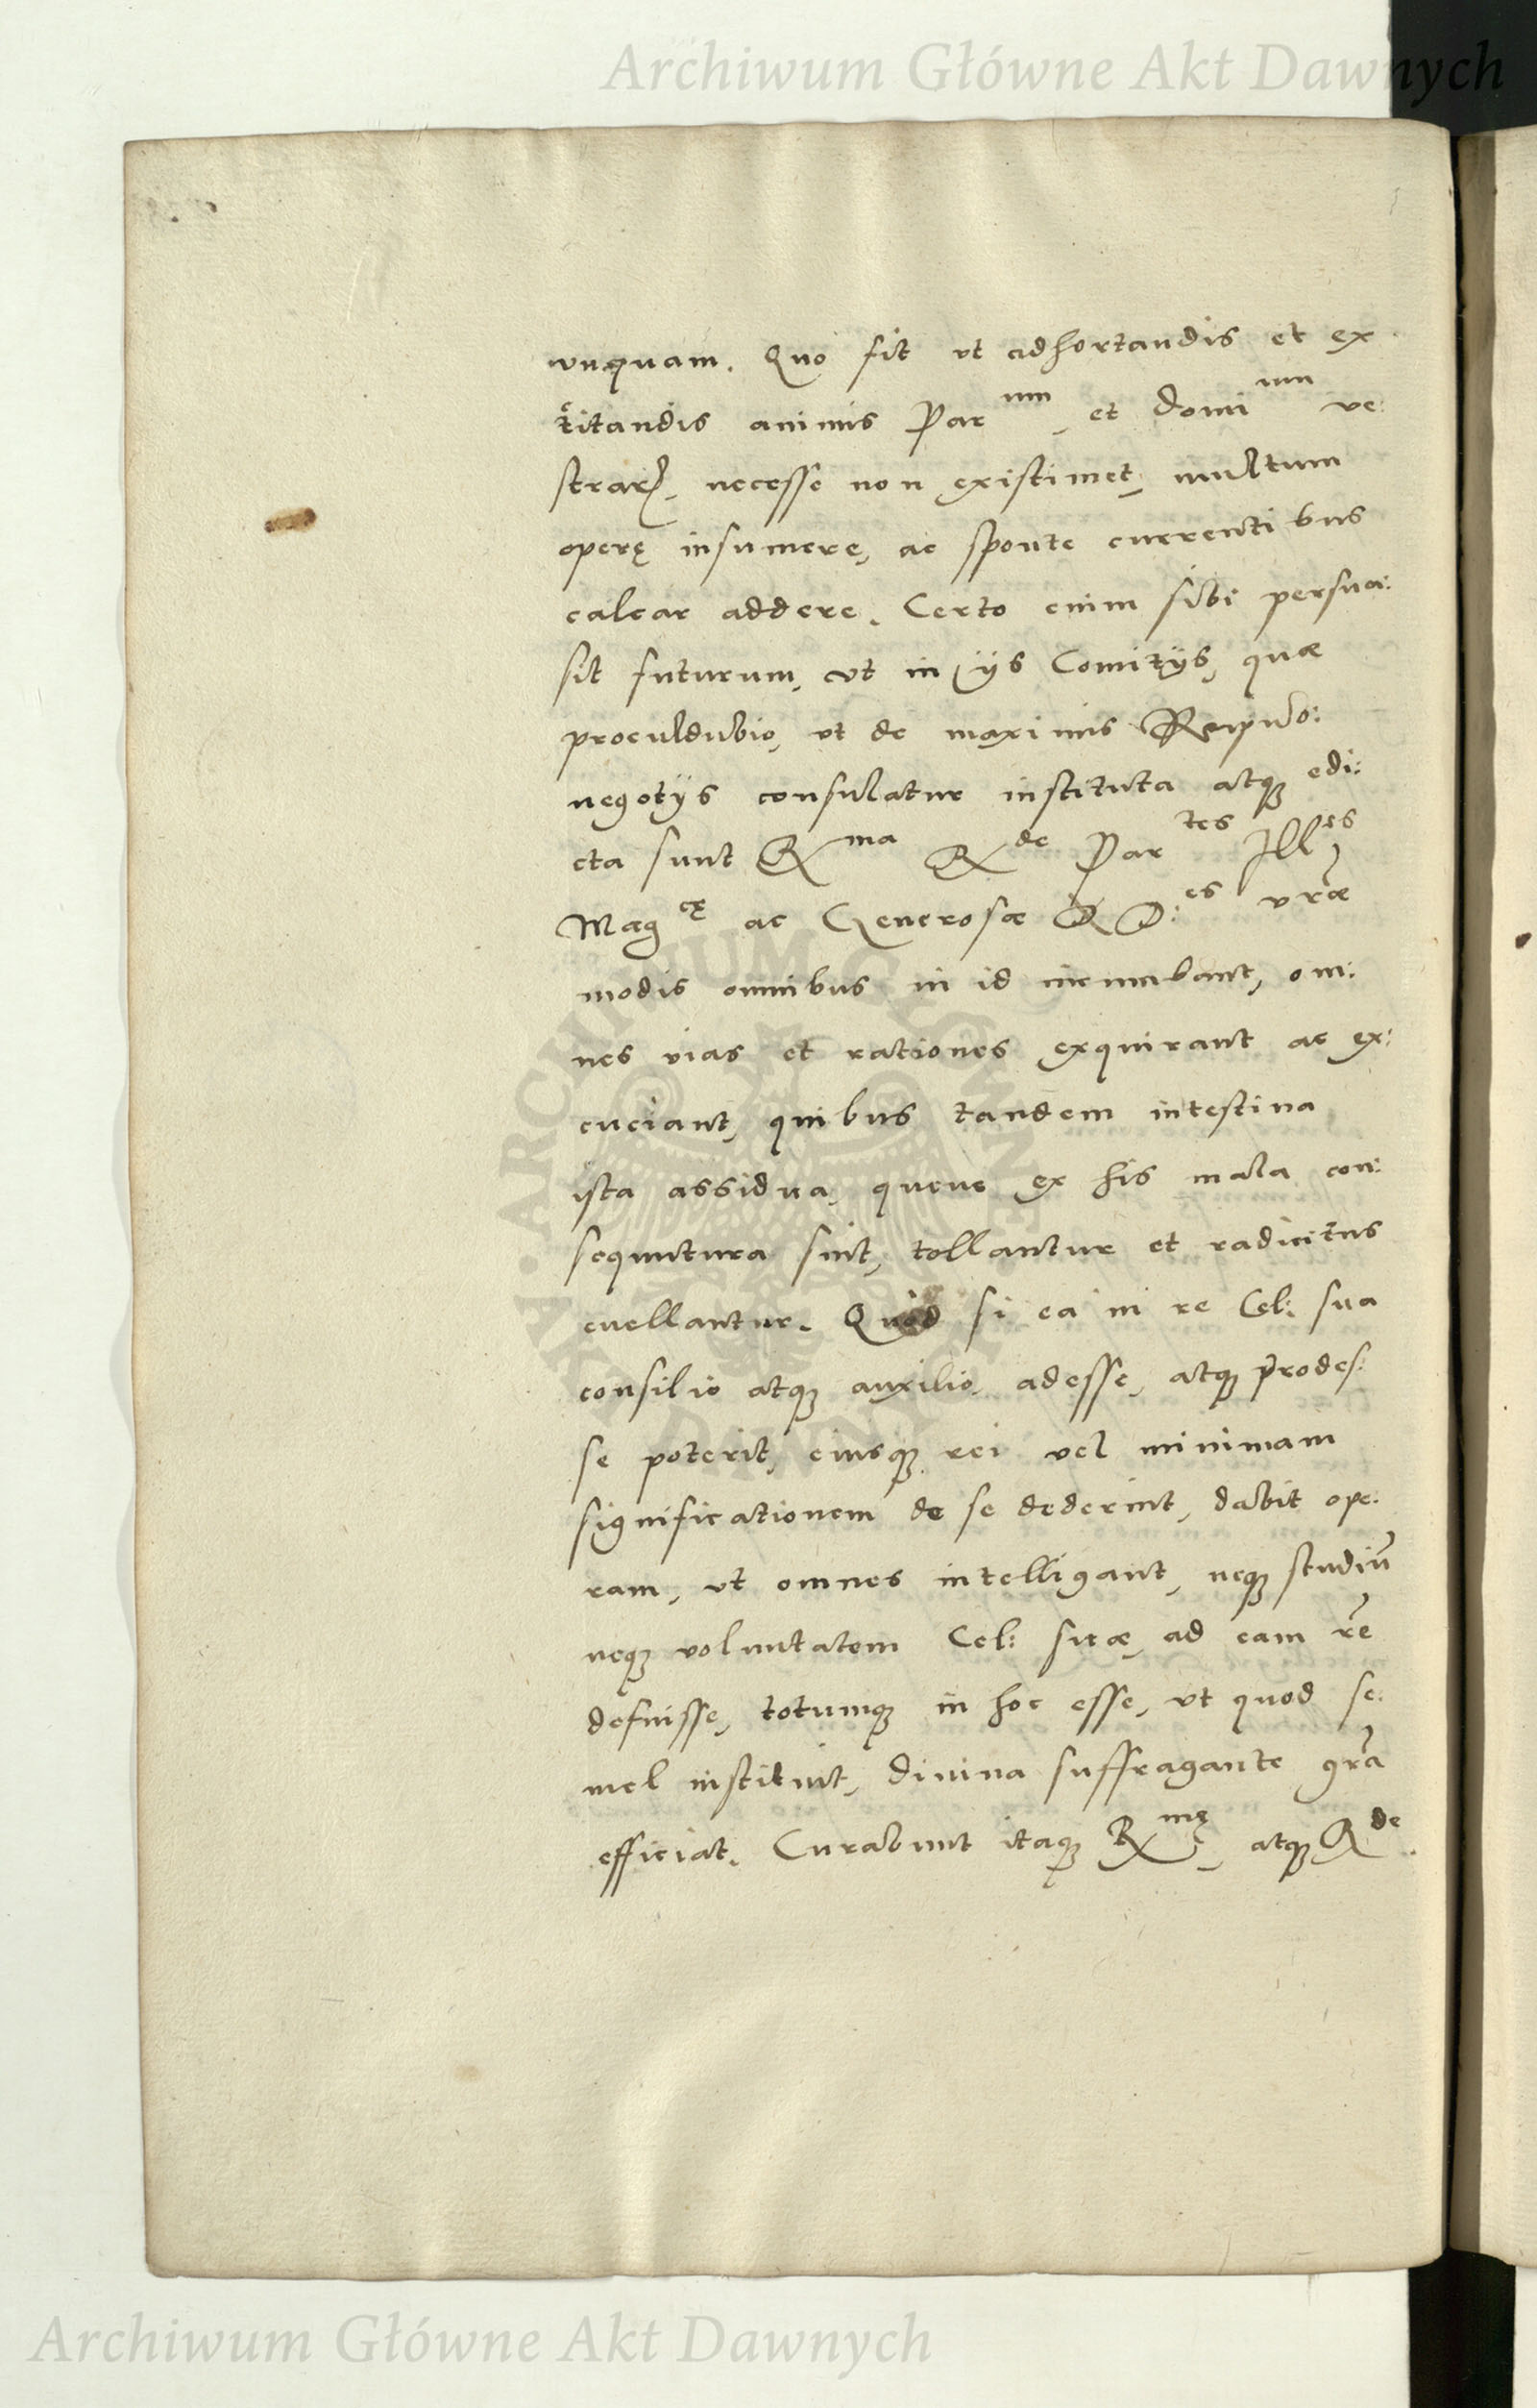 Archiwum Główne Akt Dawnych
unquam. Quo fit ut adhortandis et ex
citandis animis Par^um, et Domi^um ve:
strar, necesse non existimet, multum
operę insumere, ac sponte currentibus
calcar addere. Certo enim sibi persua:
sit futurum, ut in ijs Comitijs, quæ
proculdubio, ut de maximis Reipub:
negotijs consulatur instituta atq3 edi:
cta sunt R^ma R^de Par^tes Ill^es
Mag^cę ac Generosæ D D:^es vræ
modis omnibus in id incumbant, om:
nes vias et rationes exquirant ac ex:
cuciant, quibus tandem intestina
ista assidua, queue ex his mala con:
sequutura sint, tollantur et radicitus
euellantur. Quod si ea in re Cel: sua
consilio atq3 auxilio, adesse, atq3 prodes:
se poterit, eiusq3 rei vel minimam
significationem de se dederint, dabit ope:
ram, ut omnes intelligant, neq3 studiũ
neq3 voluntatem Cel: suæ, ad eam rẽ
defuisse, totumq3 in hoc esse, ut quod se:
mel instituit, diuina suffragante grã
efficiat. Curabunt itaq3 R^mę, atq3 R^de
ARCHIWUM GŁÓWNE AKT DAWNYCH
Archiwum Główne Akt Dawnych